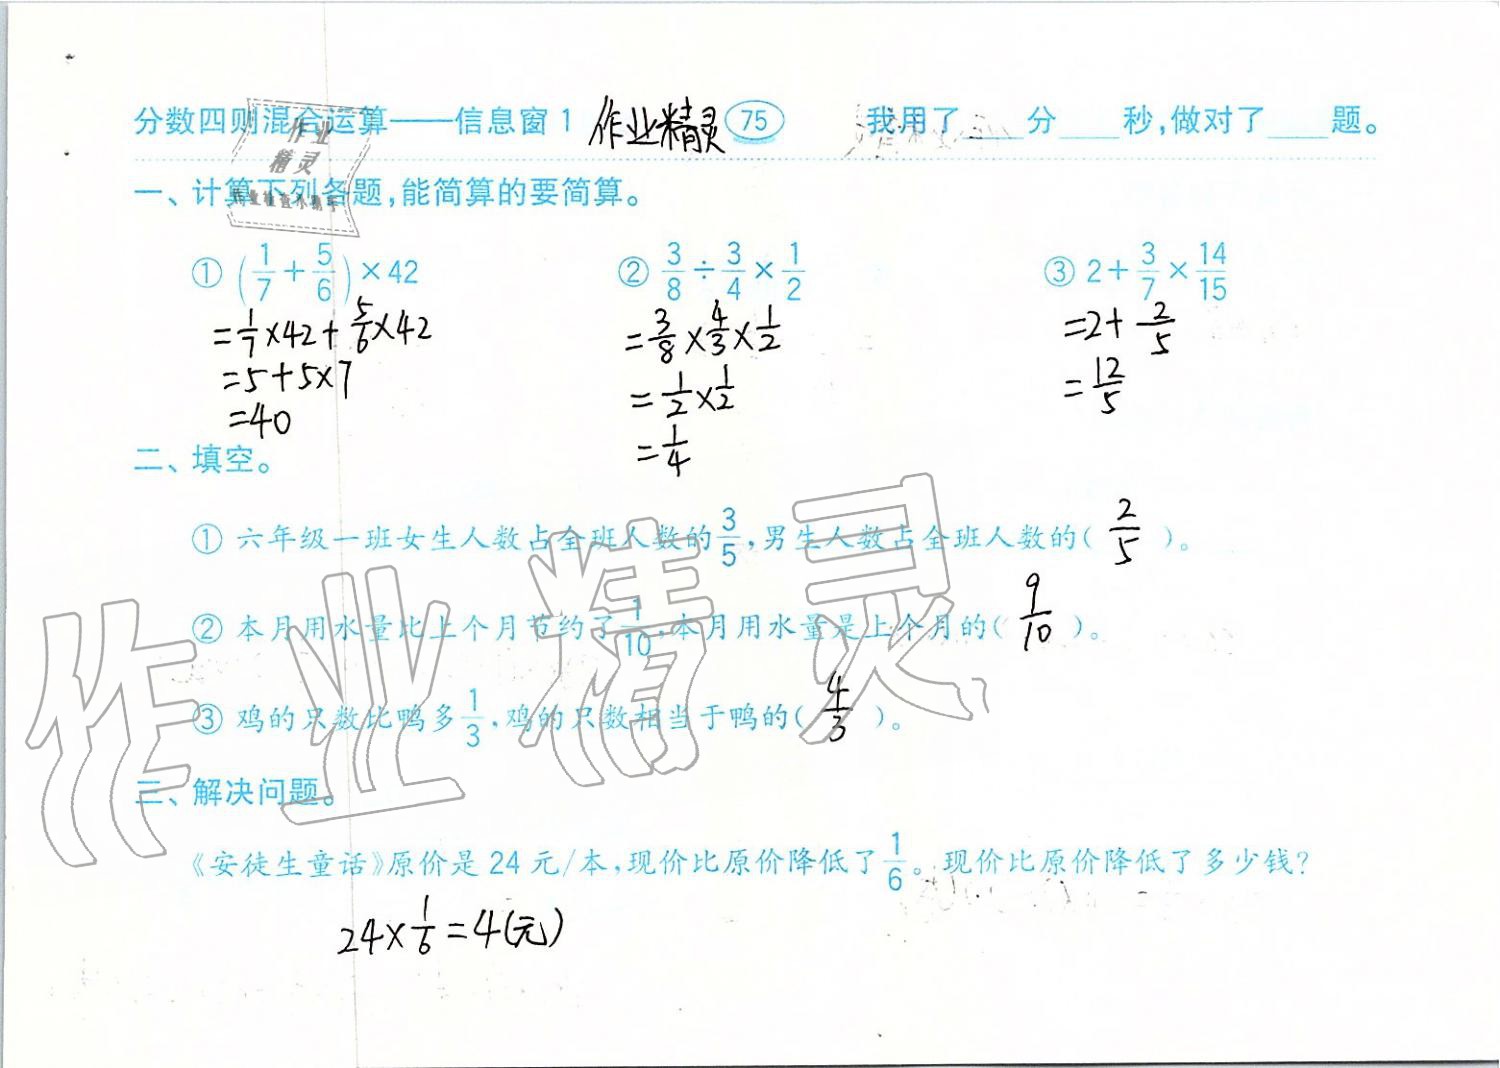 分数四则混合运算——信息窗1 作业精灵 75 我用了____分____秒,做对了____题。
作业
精灵
作业检查小助手
一、计算下列各题,能简算的要简算。
① (1/7 + 5/6) × 42 ② 3/8 ÷ 3/4 × 1/2 ③ 2 + 3/7 × 14/15
= 1/7 × 42 + 5/6 × 42 = 3/8 × 4/3 × 1/2 = 2 + 2/5
= 5 + 5 × 7 = 1/2 × 1/2 = 12/5
= 40 = 1/4
二、填空。
① 六年级一班女生人数占全班人数的3/5,男生人数占全班人数的( 2/5 )。
② 本月用水量比上个月节约了1/10,本月用水量是上个月的( 9/10 )。
③ 鸡的只数比鸭多1/3,鸡的只数相当于鸭的( 4/3 )。
作业精灵
三、解决问题。
《安徒生童话》原价是24元/本,现价比原价降低了1/6。现价比原价降低了多少钱?
24 × 1/6 = 4(元)